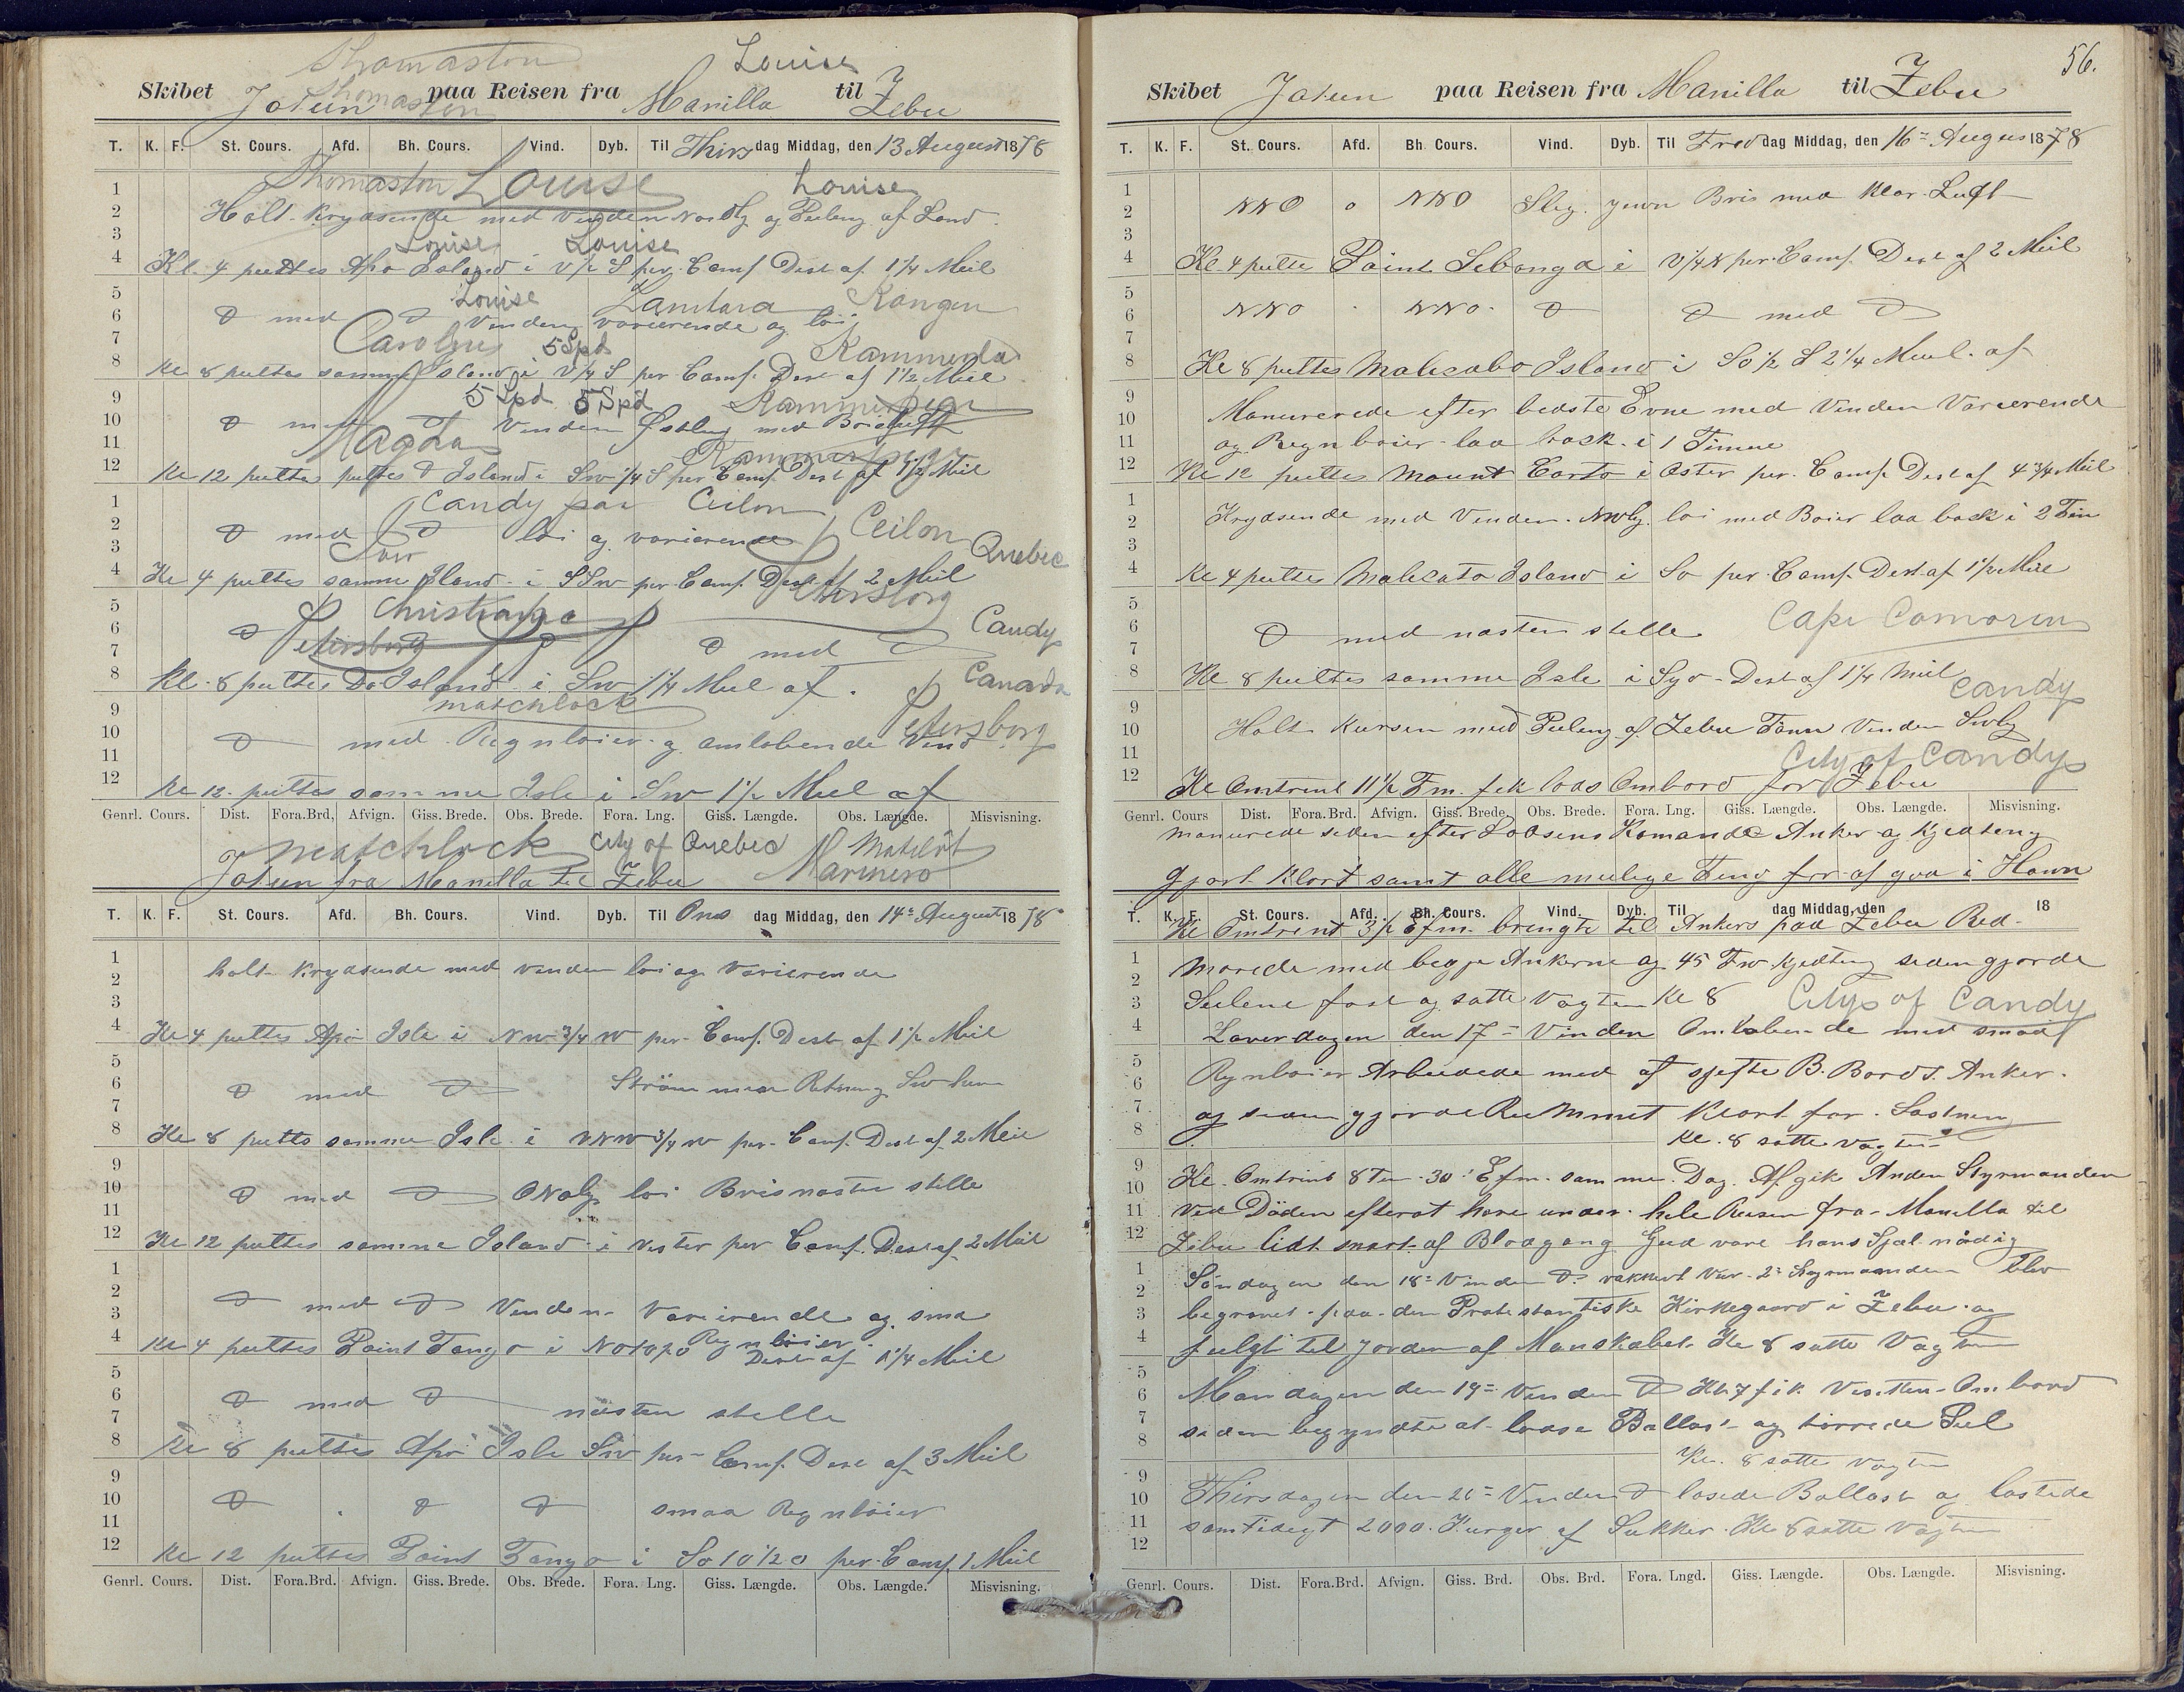 Thomaston Louise
Skibet Jotun paa Reisen fra Manilla til Zebu
Thomaston
T. K. F. St. Cours. Afd. Bh. Cours. Vind. Dyb. Til Thirs dag Middag, den 13 August 1878
Thomaston Louise Louise
Holt Krydsende med Vinden Nordlg og Peileng af Land
Louise Louise
Kl. 4 peiltes Apo Island i V½S per Comp. Dest af 1¼ Miil
Louise Zanibara Kongen
d med d Vinden varierende og löi
Caroline 5 Spd Kammerda
Kl 8 peiltes samme Island i V¼S per Comp. Dest af 1½ Miil
5 Spd 5 Spd
d med d Vinden Østlig med
Magda
Kl 12 peiltes peiltes d Island i SW¼S per Comp. Dest af 1½ Miil
Candy paa Ceilon
d med d löi og varierende Ceilon Quebec
Kl 4 peiltes samme Island i SSW per Comp. Dest af 2 Miil
Petersborg
Christiania Candy
d Petersborg d med d
Kl. 8 peiltes Do Island i SW 1¼ Miil af. Canada
matchlock
Petersborg
d med Regnböier og omlobende Vind
Kl 12 peiltes samme Isle i SW 1½ Miil af
Genrl. Cours. Dist. Fora.Brd. Afvign. Giss. Brede. Obs. Brede. Fora. Lng. Giss. Længde. Obs. Længde. Misvisning.
matchlock City of Quebec Matelöt
Jotun fra Manilla til Zebu Marinero
T. K. F. St. Cours. Afd. Bh. Cours. Vind. Dyb. Til Ons dag Middag, den 14de August 1878
holt Krydsende med vinden löi og Varierende
Kl 4 peiltes Apo Isle i NW¾W per Comp. Dest af 1½ Miil
d med d Ström Retning
Kl 8 peiltes samme Isle i VNW¾W per Comp. Dest af 2 Miil
d med d löi Bris nästen stille
Kl 12 peiltes samme Island i Vester per Comp. Dest af 2 Miil
d med d Vinden Varierende og sma
Regnböier
Kl 4 peiltes Point Tango i Dest af 1¼ Miil
d med d nästen stille
Kl 8 peiltes Apo Isle SW per Comp. Dest af 3 Miil
d d d smaa Regnböier
Kl 12 peiltes Point Tango i per Comp. 1 Miil
Genrl. Cours. Dist. Fora.Brd. Afvign. Giss. Brede. Obs. Brede. Fora. Lng. Giss. Længde. Obs. Længde. Misvisning.
56.
Skibet Jotun paa Reisen fra Manilla til Zebu
T. K. F. St. Cours. Afd. Bh. Cours. Vind. Dyb. Til Fre dag Middag, den 16de August 1878
NNO o NNO Bris med klar Luft
Kl 4 peilte Point Sebonga i V¼N per Comp. Dest af 2 Miil
NNO NNO d d med d
Kl 8 peiltes Malecabo Island i SO½S 2¼ Miil af
Manurerede efter bedste Evne med Vinden Varierende
og Regnböier laa back i 1 Time
Kl 12 peiltes Mount Corto i Öster per Comp. Dest af 4¾ Miil
Krydsende med Vinden NWlg löi med Böier laa back i 2 Tim
Kl 4 peiltes Malecato Island i So per Comp. Dest af 1½ Miil
Cape Comorin
d med nästen stille
Kl 8 peiltes samme Isle i Dest af 1¼ Miil
Candy
Holt Kursen med Peileng af Zebu Vinden SWlg
City of Candy
Kl Omtrent 11½ Fm. fik Lods Ombord for Zebu
Genrl. Cours Dist. Fora.Brd. Afvign. Giss. Brede. Obs. Brede. Fora. Lng. Giss. Længde. Obs. Længde. Misvisning.
manurede siden efter Lodsens Komando Anker og Kjedteng
gjort klart samt alle mulige Ting for at gaa i Havn
T. K. F. St. Cours. Afd. Bh. Cours. Vind. Dyb. Til dag Middag, den 18
Kl Omtrent 3½ Efm. bringte til Ankers paa Zebu Red
Morede med begje Ankerne og 45 Fw Kjedting siden gjorde
Seilene fast og satte Vagten Kl 8 City of Candy
Löverdagen den 17de Vinden Omlobende med smaa
Regnböier Arbeidede med at B. Bords Anker.
og siden gjorde Rummet klart for Lastnen
Kl. 8 satte vagten
Kl. Omtrent 8 Tm. 30' Efm. samme Dag. Afgik Anden Styrmanden
Ved Döden efterat have under hele Reisen fra Manilla til
Zebu lidt smart af Blodgang Gud vare hans Sjæl nådig
Söndagen den 18de Vinden d vakkert Vär. 2de Styrmanden blev
begravet paa den Protestantiske Kirkegaard i Zebu og
fulgt til jorden af Manskabet. Kl 8 satte Vagten
Mandagen den 19de Vinden d Kl 7 fik Visitten Ombord
siden begyndte at losse Ballast og törrede Seil
Kl. 8 satte Vagten
Thirsdagen den 20de Vinden d losede Ballast og lastede
samtidigt 2000 Kurger af Sukker. Kl 8 satte Vagten
Genrl. Cours. Dist. Fora.Brd. Afvign. Giss. Brd. Obs. Brd. Fora. Lngd. Giss. Længde. Obs. Længde. Misvisning.